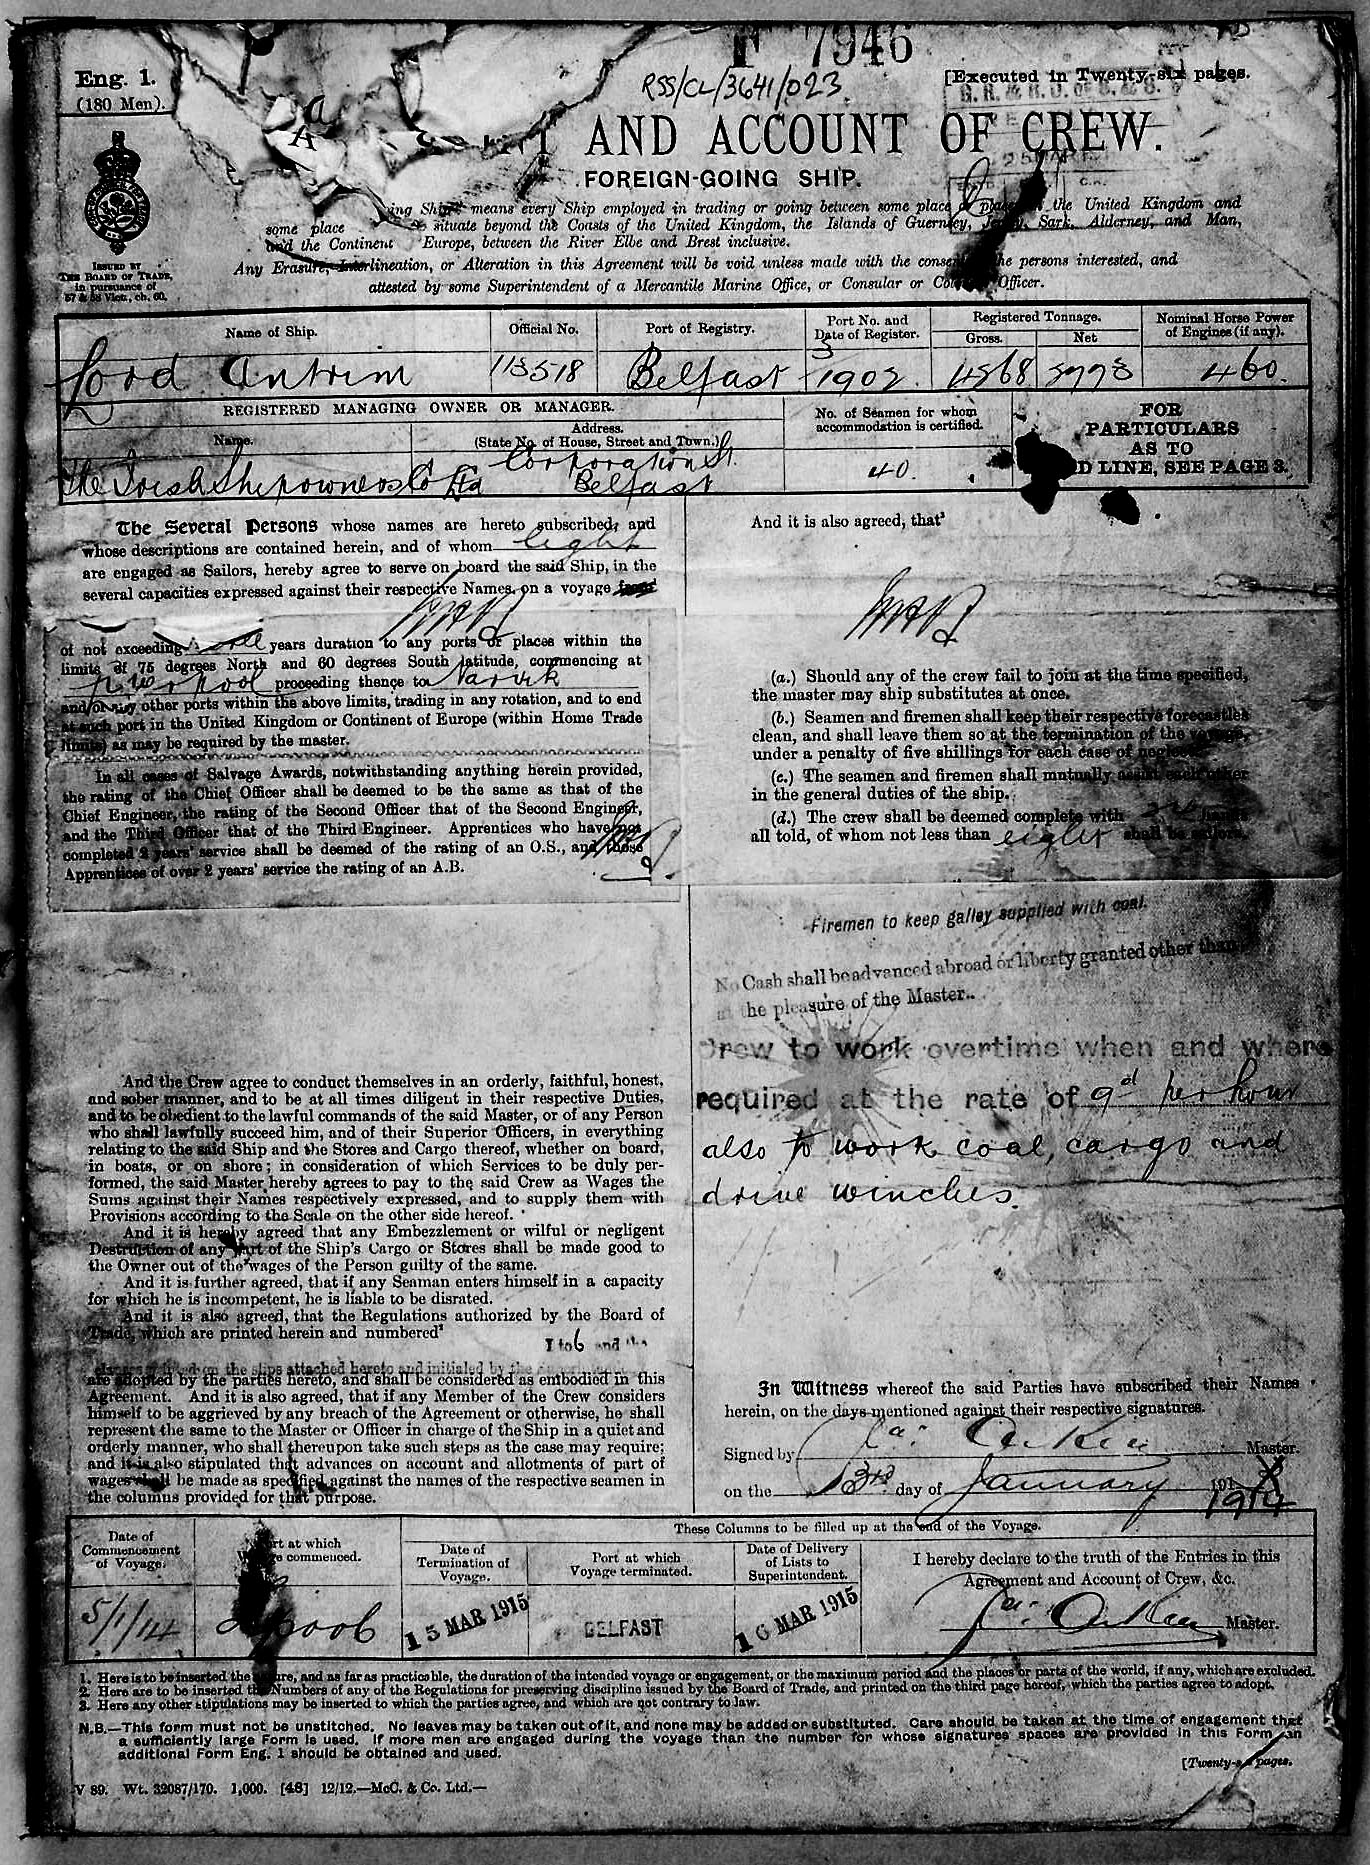 F 7946
Eng. 1.
(180 Men).
RSS/CL/3641/023
[Executed in Twenty-six pages.
AND ACCOUNT OF CREW.
FOREIGN-GOING SHIP.
ISSUED BY
THE BOARD OF TRADE,
in pursuance of
57 & 58 Vict., ch. 60.
ing Ship means every Ship employed in trading or going between some place or places in the United Kingdom and
some place situate beyond the Coasts of the United Kingdom, the Islands of Guernsey, Jersey, Sark, Alderney, and Man,
and the Continent Europe, between the River Elbe and Brest inclusive.
Any Erasure, Interlineation, or Alteration in this Agreement will be void unless made with the consent the persons interested, and
attested by some Superintendent of a Mercantile Marine Office, or Consular or Officer.
Name of Ship.
Official No.
Port of Registry.
Port No. and
Date of Register.
Registered Tonnage.
Gross.
Net
Nominal Horse Power
of Engines (if any).
Lord Antrim
113518
Belfast
3
1902.
4268
460.
REGISTERED MANAGING OWNER OR MANAGER.
Name.
Address.
(State No. of House, Street and Town.)
No. of Seamen for whom
accommodation is certified.
FOR
PARTICULARS
AS TO
D LINE, SEE PAGE 3.
The Irish Shipowners Co Ltd
Corporation St.
Belfast
40.
The Several Persons whose names are hereto subscribed, and
whose descriptions are contained herein, and of whom eight
are engaged as Sailors, hereby agree to serve on board the said Ship, in the
several capacities expressed against their respective Names, on a voyage
of not exceeding years duration to any ports or places within the
limits of 75 degrees North and 60 degrees South latitude, commencing at
Liverpool proceeding thence to Narvik
and/or any other ports within the above limits, trading in any rotation, and to end
at such port in the United Kingdom or Continent of Europe (within Home Trade
limits) as may be required by the master.
In all cases of Salvage Awards, notwithstanding anything herein provided,
the rating of the Chief Officer shall be deemed to be the same as that of the
Chief Engineer, the rating of the Second Officer that of the Second Engineer,
and the Third Officer that of the Third Engineer. Apprentices who have not
completed 2 years' service shall be deemed of the rating of an O.S., and those
Apprentices of over 2 years' service the rating of an A.B.
And the Crew agree to conduct themselves in an orderly, faithful, honest,
and sober manner, and to be at all times diligent in their respective Duties,
and to be obedient to the lawful commands of the said Master, or of any Person
who shall lawfully succeed him, and of their Superior Officers, in everything
relating to the said Ship and the Stores and Cargo thereof, whether on board,
in boats, or on shore; in consideration of which Services to be duly per-
formed, the said Master hereby agrees to pay to the said Crew as Wages the
Sums against their Names respectively expressed, and to supply them with
Provisions according to the Scale on the other side hereof.
And it is hereby agreed that any Embezzlement or wilful or negligent
Destruction of any part of the Ship's Cargo or Stores shall be made good to
the Owner out of the wages of the Person guilty of the same.
And it is further agreed, that if any Seaman enters himself in a capacity
for which he is incompetent, he is liable to be disrated.
And it is also agreed, that the Regulations authorized by the Board of
Trade, which are printed herein and numbered²
1 to 6 and the
on the slips attached hereto and initialed by the
are adopted by the parties hereto, and shall be considered as embodied in this
Agreement. And it is also agreed, that if any Member of the Crew considers
himself to be aggrieved by any breach of the Agreement or otherwise, he shall
represent the same to the Master or Officer in charge of the Ship in a quiet and
orderly manner, who shall thereupon take such steps as the case may require;
and it is also stipulated that advances on account and allotments of part of
wages shall be made as specified against the names of the respective seamen in
the columns provided for that purpose.
And it is also agreed, that³
(a.) Should any of the crew fail to join at the time specified,
the master may ship substitutes at once.
(b.) Seamen and firemen shall keep their respective forecastles
clean, and shall leave them so at the termination of the voyage,
under a penalty of five shillings for each case of neglect
(c.) The seamen and firemen shall mutually assist each other
in the general duties of the ship.
(d.) The crew shall be deemed complete with hands
all told, of whom not less than eight shall be sailors.
Firemen to keep galley supplied with coal.
No Cash shall be advanced abroad or liberty granted other than
at the pleasure of the Master..
Crew to work overtime when and where
required at the rate of 9d per hour
also to work coal, cargo and
drive winches.
In Witness whereof the said Parties have subscribed their Names
herein, on the days mentioned against their respective signatures.
Signed by Master.
on the 3rd day of January 191
1914
Date of
Commencement
of Voyage.
Port at which
Voyage commenced.
These Columns to be filled up at the end of the Voyage.
Date of
Termination of
Voyage.
Port at which
Voyage terminated.
Date of Delivery
of Lists to
Superintendent.
I hereby declare to the truth of the Entries in this
Agreement and Account of Crew, &c.
5/1/14
L'pool
15 MAR 1915
BELFAST
16 MAR 1915
Master.
1. Here is to be inserted the nature, and as far as practicable, the duration of the intended voyage or engagement, or the maximum period and the places or parts of the world, if any, which are excluded.
2. Here are to be inserted the Numbers of any of the Regulations for preserving discipline issued by the Board of Trade, and printed on the third page hereof, which the parties agree to adopt.
3. Here any other stipulations may be inserted to which the parties agree, and which are not contrary to law.
N.B.—This form must not be unstitched. No leaves may be taken out of it, and none may be added or substituted. Care should be taken at the time of engagement that
a sufficiently large Form is used. If more men are engaged during the voyage than the number for whose signatures spaces are provided in this Form an
additional Form Eng. 1 should be obtained and used.
[Twenty-six pages.
V 89. Wt. 32087/170. 1,000. [48] 12/12.—McC. & Co. Ltd.—